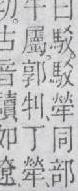 曰駁駁犖同部
牛屬郭 丁犖
切古音讀如遼